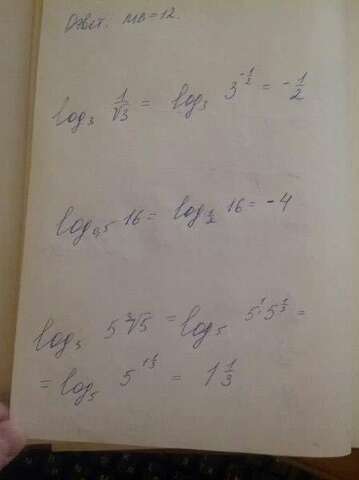 Ответ: МВ=12.
log₃ 1/√3 = log₃ 3^(-1/2) = -1/2
log₀,₅ 16 = log_(1/2) 16 = -4
log₅ 5∛5 = log₅ 5¹5^(1/3) =
= log₅ 5^(1 1/3) = 1 1/3